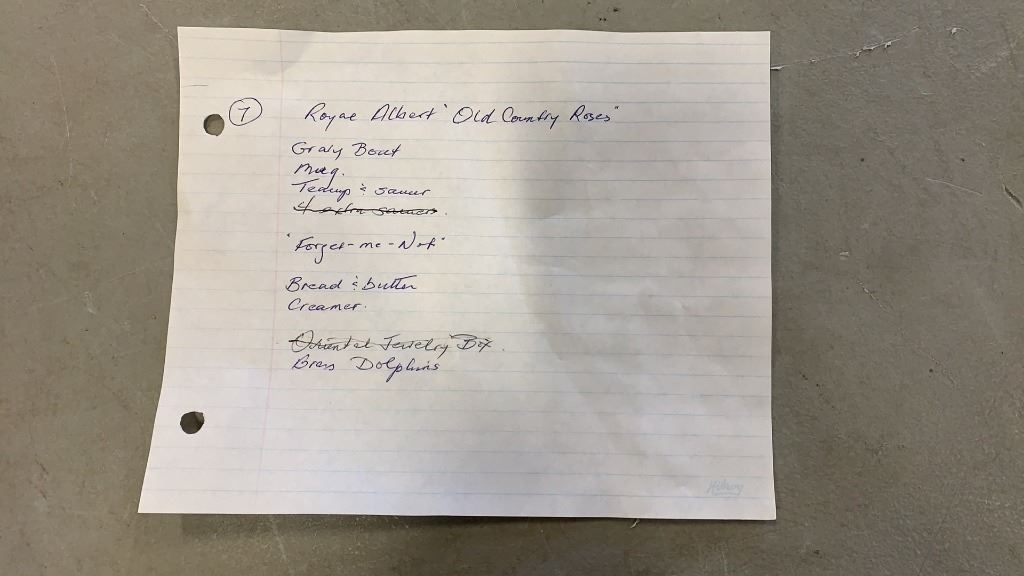 7 Royal Albert "Old Country Roses"
Gravy Boat
Mug.
Teacup & saucer
4 extra saucers.
"Forget-me-Not"
Bread & butter
Creamer.
Oriental Jewelry Box.
Brass Dolphins
Hilroy